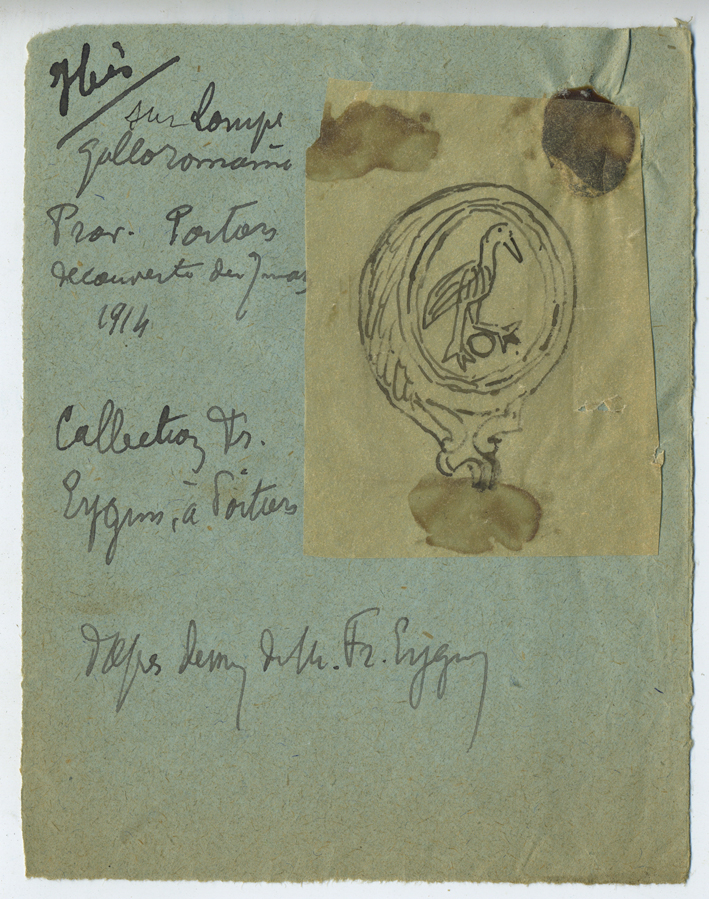 Ibis
sur Lampe
galloromaine
Prov. Poitiers
découverte du 7 mars
1914
Collection Fr.
Eygun, à Poitiers
d'après dessin de M. Fr. Eygun